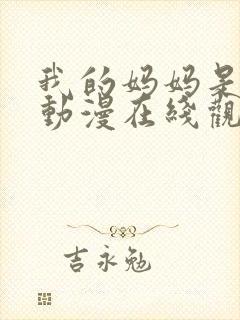 我的妈妈呆
動漫在綫觀
吉永勉